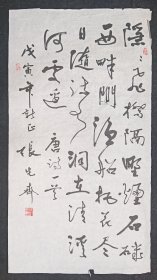 隱〻飛橋隔野煙石磯
西畔問漁船桃花盡
日隨流水洞在清溪
何處邊 唐詩一首
戊寅年新正 張